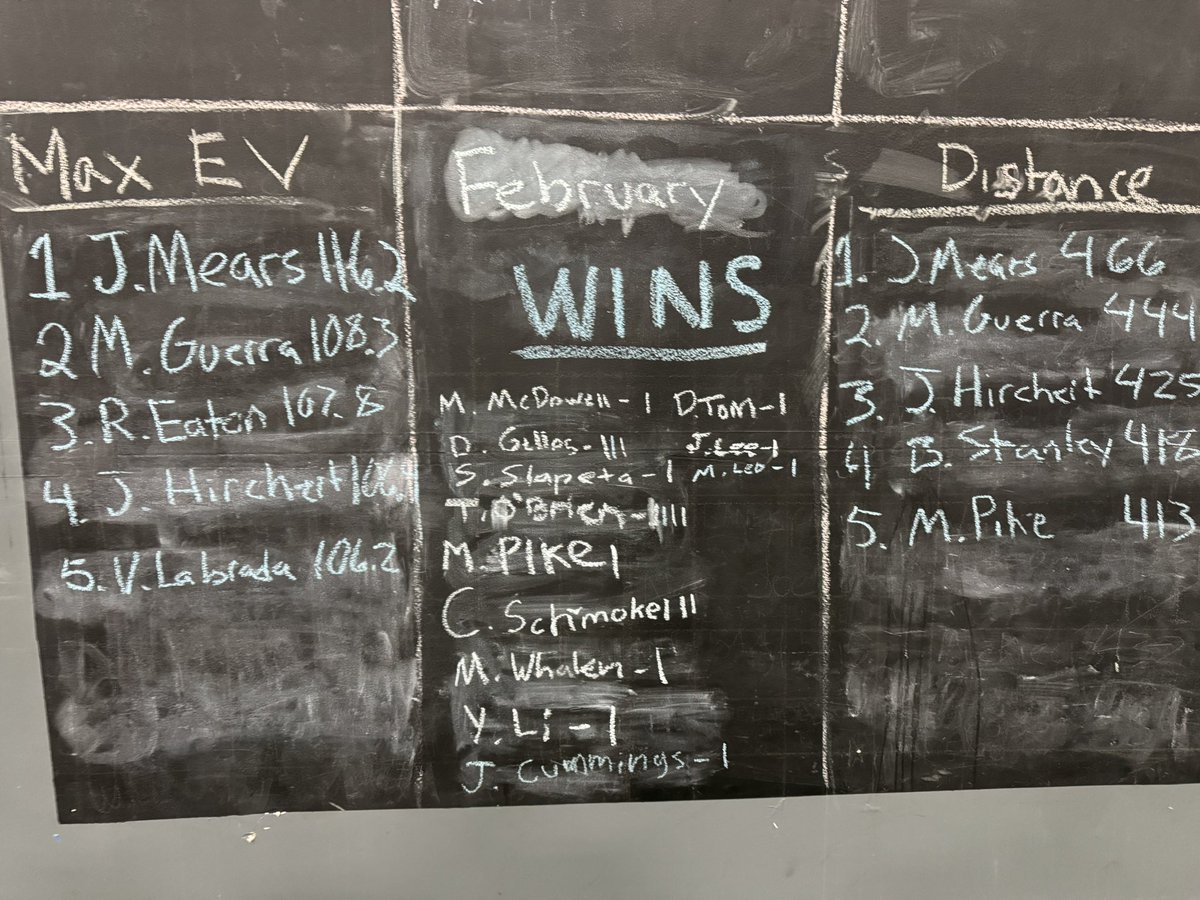 Max EV
1 J. Mears 116.2
2 M. Guerra 108.3
3. R. Eaton 107.8
4. J. Hircheit
5. V. Labrada 106.2
February
WINS
M. McDowell - I
D. Tom - I
D. Gillos - III
J. Lee - I
S. Slapeta - I
M. Leo - I
T. O'Brien - IIII
M. Pike I
C. Schmoke III
M. Whalen - I
Y. Li - I
J. Cummings - I
S
Distance
1. J Mears 466
2. M. Guerra 444
3. J. Hircheit 425
4 B. Stanley 418
5. M. Pike 413